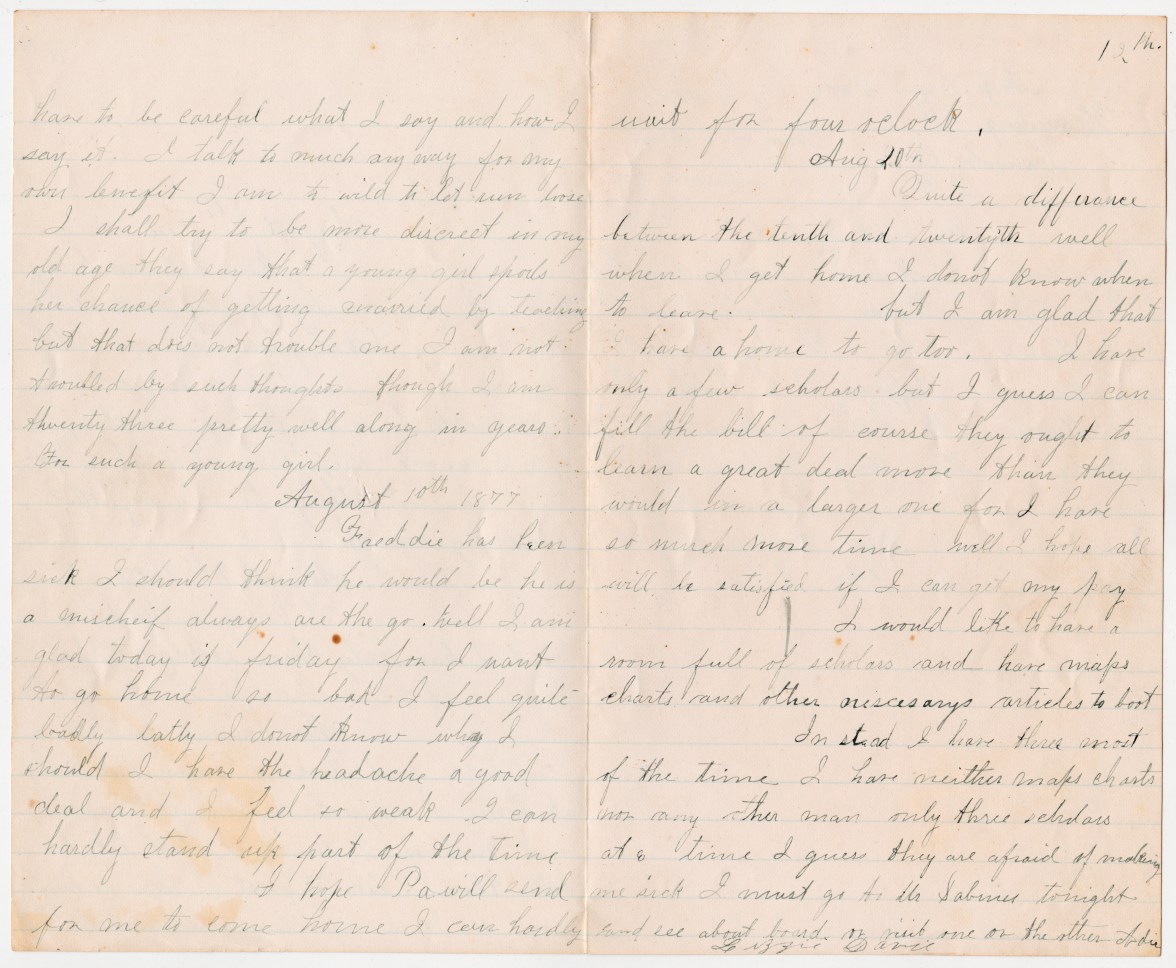 have to be careful what I say and how I
say it. I talk to much any way for my
own benefit I am to wild to let run loose
I shall try to be more discreet in my
old age they say that a young girl spoils
her chance of getting married by teaching
but that does not trouble me I am not
troubled by such thoughts though I am
twenty three pretty well along in years
For such a young girl.
August 10th 1877
Faeddie has been
sick I should think he would be he is
a mischeif always are the go. Well I am
glad today is friday for I want
to go home so bad I feel quite
badly latly I donot know why I
should I have the headache a good
deal and I feel so weak I can
hardly stand up part of the time
I hope Pa will send
for me to come home I can hardly
12th.
wait for four oclock.
Aug 20th
Quite a differance
between the tenth and twentyth well
when I get home I donot know when
to leave. but I am glad that
I have a home to go too. I have
only a few scholars but I guess I can
fill the bill of course they ought to
learn a great deal more than they
would in a larger one for I have
so much more time well I hope all
will be satisfied if I can get my pay
I would like to have a
room full of scholars and have maps
charts and other niscesarys articles to boot
In stead I have three most
of the time I have neither maps charts
nor any other man only three scholars
at a time I guess they are afraid of making
me sick I must go to Mr Sabines tonight
and see about board or visit one or the other
Lizzie Davie